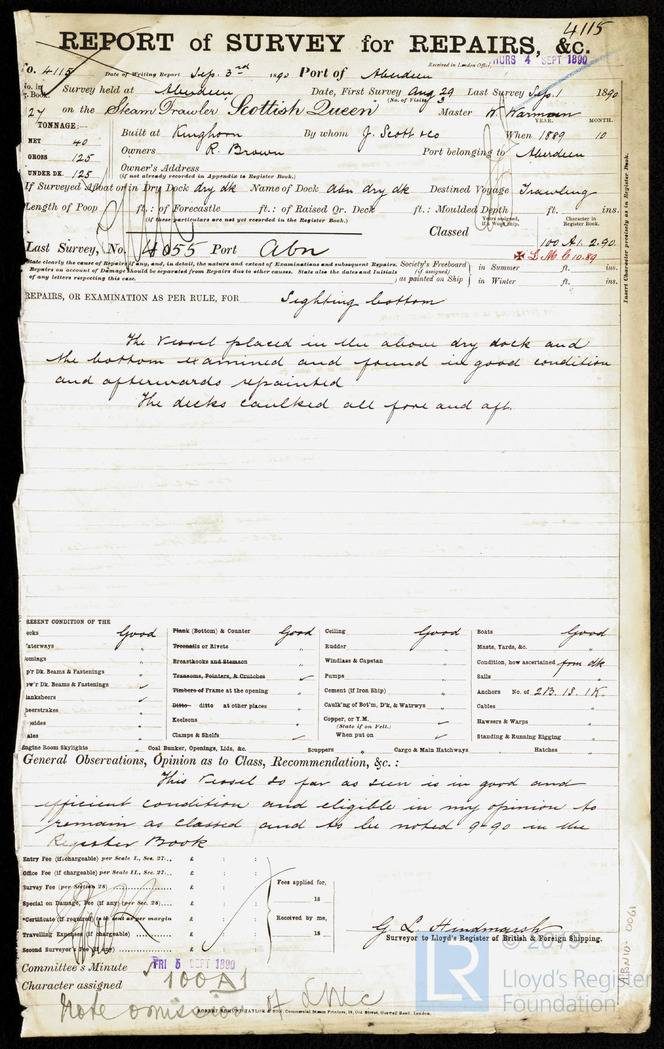 4115
REPORT of SURVEY for REPAIRS, &c.
Received in London Office, THURS 4 SEPT 1890
No. 4115 Date of Writing Report Sep. 3rd 1890 Port of Aberdeen
No. in Reg. Book. Survey held at Aberdeen Date, First Survey Aug 29 Last Survey Sep. 1 1890
(No. of Visits 3)
27 on the Steam Trawler "Scottish Queen" Master W. Warman
TONNAGE:— YEAR. MONTH.
NET 40 Built at Kinghorn By whom J. Scott & Co When 1889 10
GROSS 125 Owners R. Brown Port belonging to Aberdeen
UNDER DK. 125 Owner's Address
(if not already recorded in Appendix to Register Book.)
If Surveyed Afloat or in Dry Dock dry dk Name of Dock abn dry dk Destined Voyage Trawling
Length of Poop ft.: of Forecastle ft.: of Raised Qr. Deck ft.: Moulded Depth ft. ins.
(if these particulars are not yet recorded in the Register Book.)
Years assigned, if a Wood Ship. Character in Register Book.
Classed 100 A1. 2.90
Last Survey, No. 4055 Port Abn
L M C 10.89
State clearly the cause of Repairs if any, and, in detail, the nature and extent of Examinations and subsequent Repairs.
Repairs on account of Damage should be separated from Repairs due to other causes. State also the dates and Initials
of any letters respecting this case.
Society's Freeboard (if assigned) as painted on Ship
in Summer ft. ins.
in Winter ft. ins.
Insert Character precisely as in Register Book.
REPAIRS, OR EXAMINATION AS PER RULE, FOR Sighting bottom
The vessel placed in the above dry dock and
the bottom examined and found in good condition
and afterwards repainted
The decks caulked all fore and aft.
PRESENT CONDITION OF THE
Decks Good Plank (Bottom) & Counter Good Ceiling Good Boats Good
Waterways " Treenails or Rivets " Rudder " Masts, Yards, &c. "
Comings " Breasthooks and Stemson Windlass & Capstan " Condition, how ascertained from dk
Up'r Dk. Beams & Fastenings " Transoms, Pointers, & Crutches Pumps " Sails "
Low'r Dk. Beams & Fastenings Timbers of Frame at the opening Cement (if Iron Ship) " Anchors No. of 2 B. 1 S. 1 K.
Planksheers Ditto ditto at other places Caulk'g of Bot'm, D'k, & Watrwys " Cables "
Sheerstrakes Keelsons " Copper, or Y.M. Hawsers & Warps "
Topsides (State if on Felt.)
Wales Clamps & Shelfs When put on Standing & Running Rigging "
Engine Room Skylights " Coal Bunker, Openings, Lids, &c. " Scuppers " Cargo & Main Hatchways " Hatches "
General Observations, Opinion as to Class, Recommendation, &c.:
This vessel so far as seen is in good and
efficient condition and eligible in my opinion to
remain as classed and to be noted 9-90 in the
Register Book
Entry Fee (if chargeable) per Scale I., Sec. 27... £ : :
Office Fee (if chargeable) per Scale II., Sec. 27... £ : :
Survey Fee (per Section 28) £ : :
Special on Damage, Fee (if any) (per Sec. 28) £ : :
*Certificate (if required) to be sent as per margin £ : :
Travelling Expenses (if chargeable) £ : :
Second Surveyor's Fee (if any) £ : :
Fees applied for, 18
Received by me, 18
G. L. Hindmarsh
Surveyor to Lloyd's Register of British & Foreign Shipping.
Committee's Minute FRI 5 SEPT 1890
Character assigned 100 A1
Note omission of LMC
ROBERT EDMUND TAYLOR & SON, Commercial Steam Printers, 19, Old Street, Goswell Road, London.
ABN10-0061
LR
© 2019
Lloyd's Register
Foundation